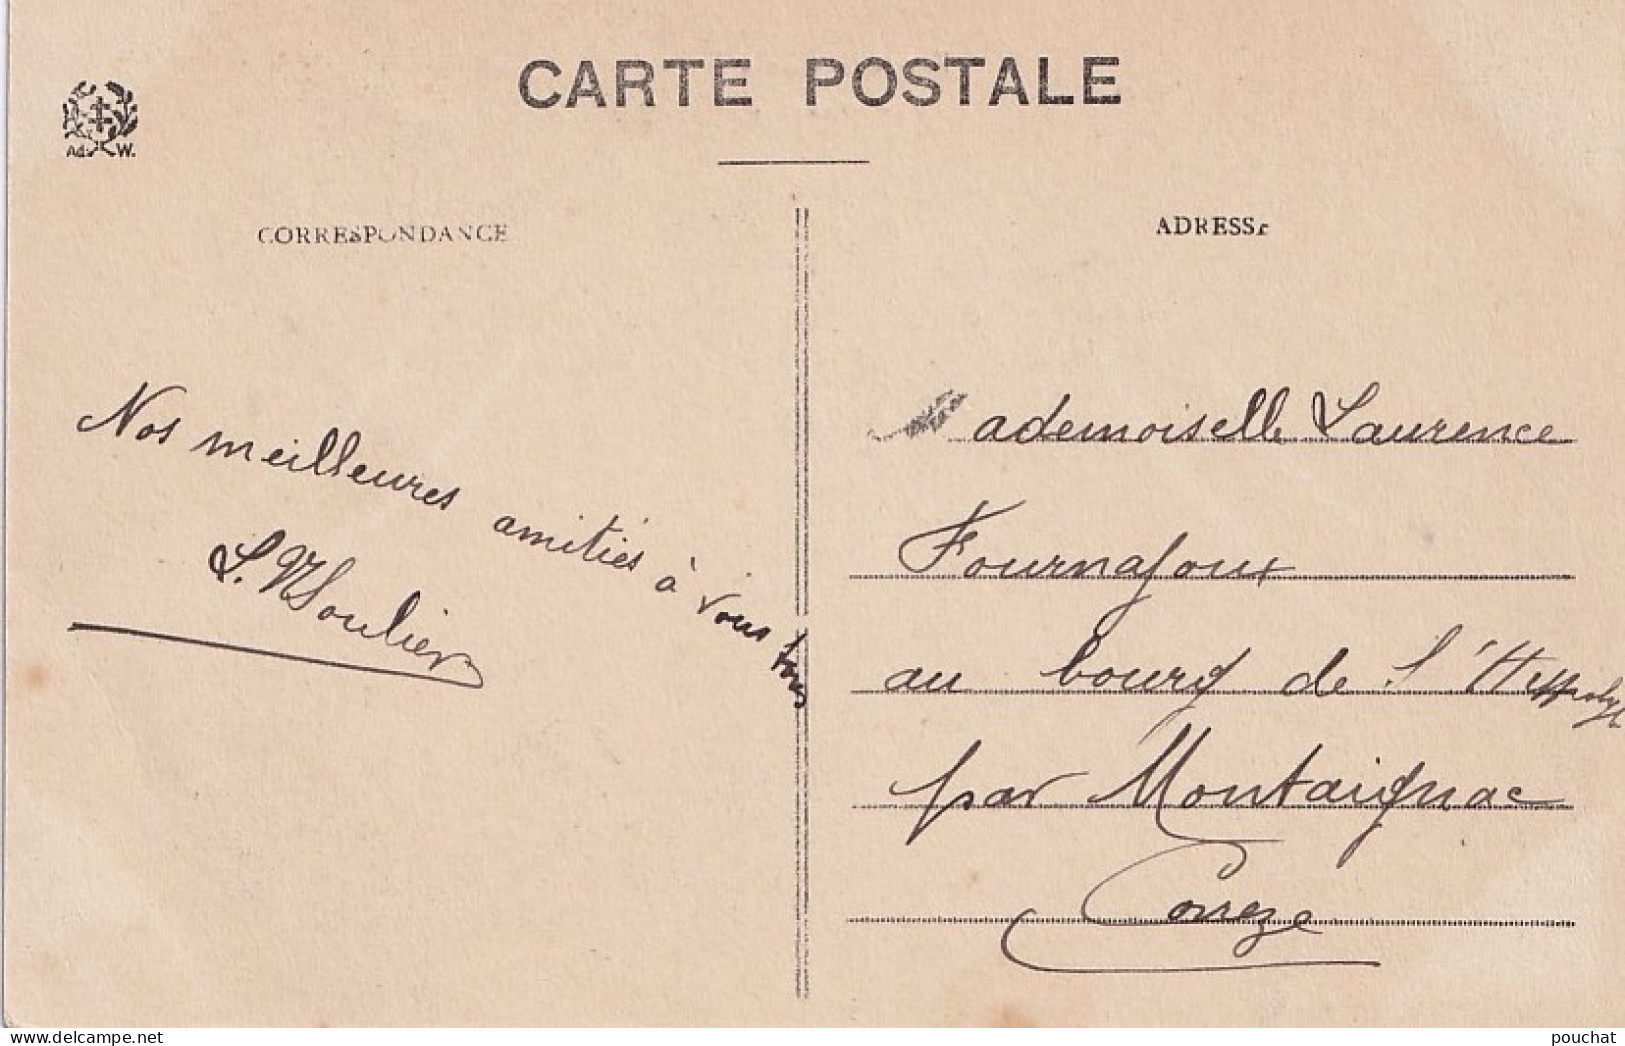 CARTE POSTALE
Ad. W.
CORRESPONDANCE
ADRESSE
Nos meilleures amitiés à vous tous
L. Moulier
Mademoiselle Laurence
Fournajoux
au bourg de l'Hippolyte
par Montaignac
Corrèze
www.delcampe.net
pouchat